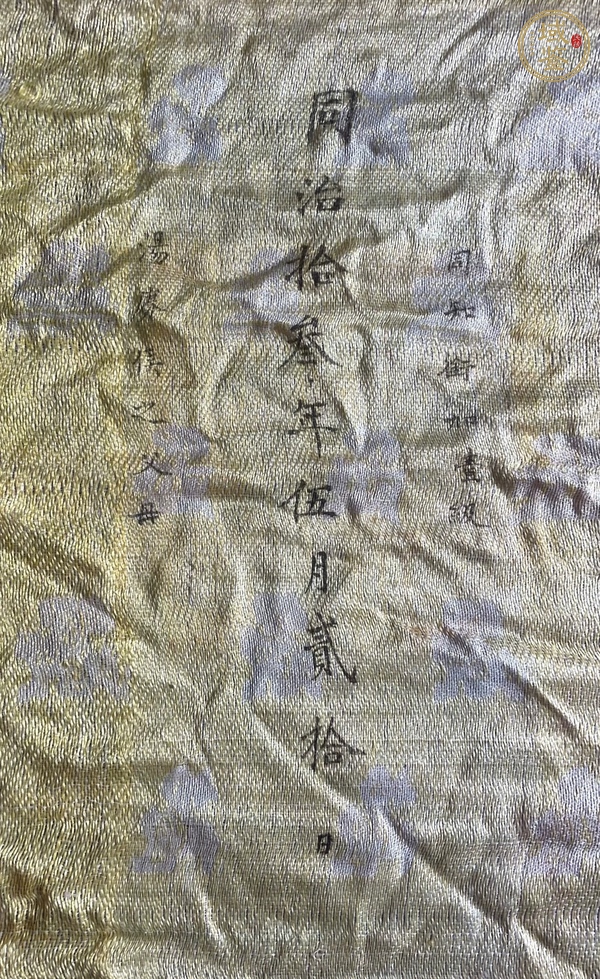 同知銜加壹級
同治拾叁年伍月貳拾日
湯慶侯之父母